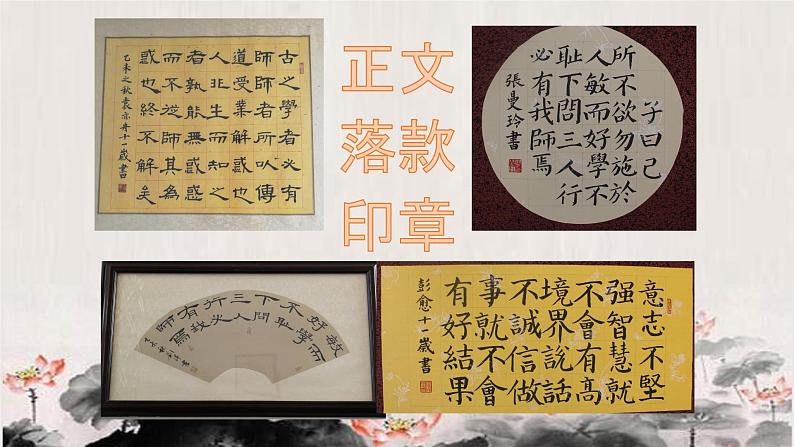 古之學者必有
師師者所以傳
道受業解惑也
人非生而知之
者孰能無惑惑
而不從師其為
惑也終不解矣
乙未之秋袁亦舟十一歲書
正文
落款
印章
子曰己
所不欲勿施於
人敏而好學不
恥下問三人行
必有我師焉
張曼玲書
敏而
好學
不恥
下問
三人
行必
有我
師焉
意志不堅
強智慧就
不會有高
境界說話
不誠信做
事就不會
有好結果
彭愈十一歲書